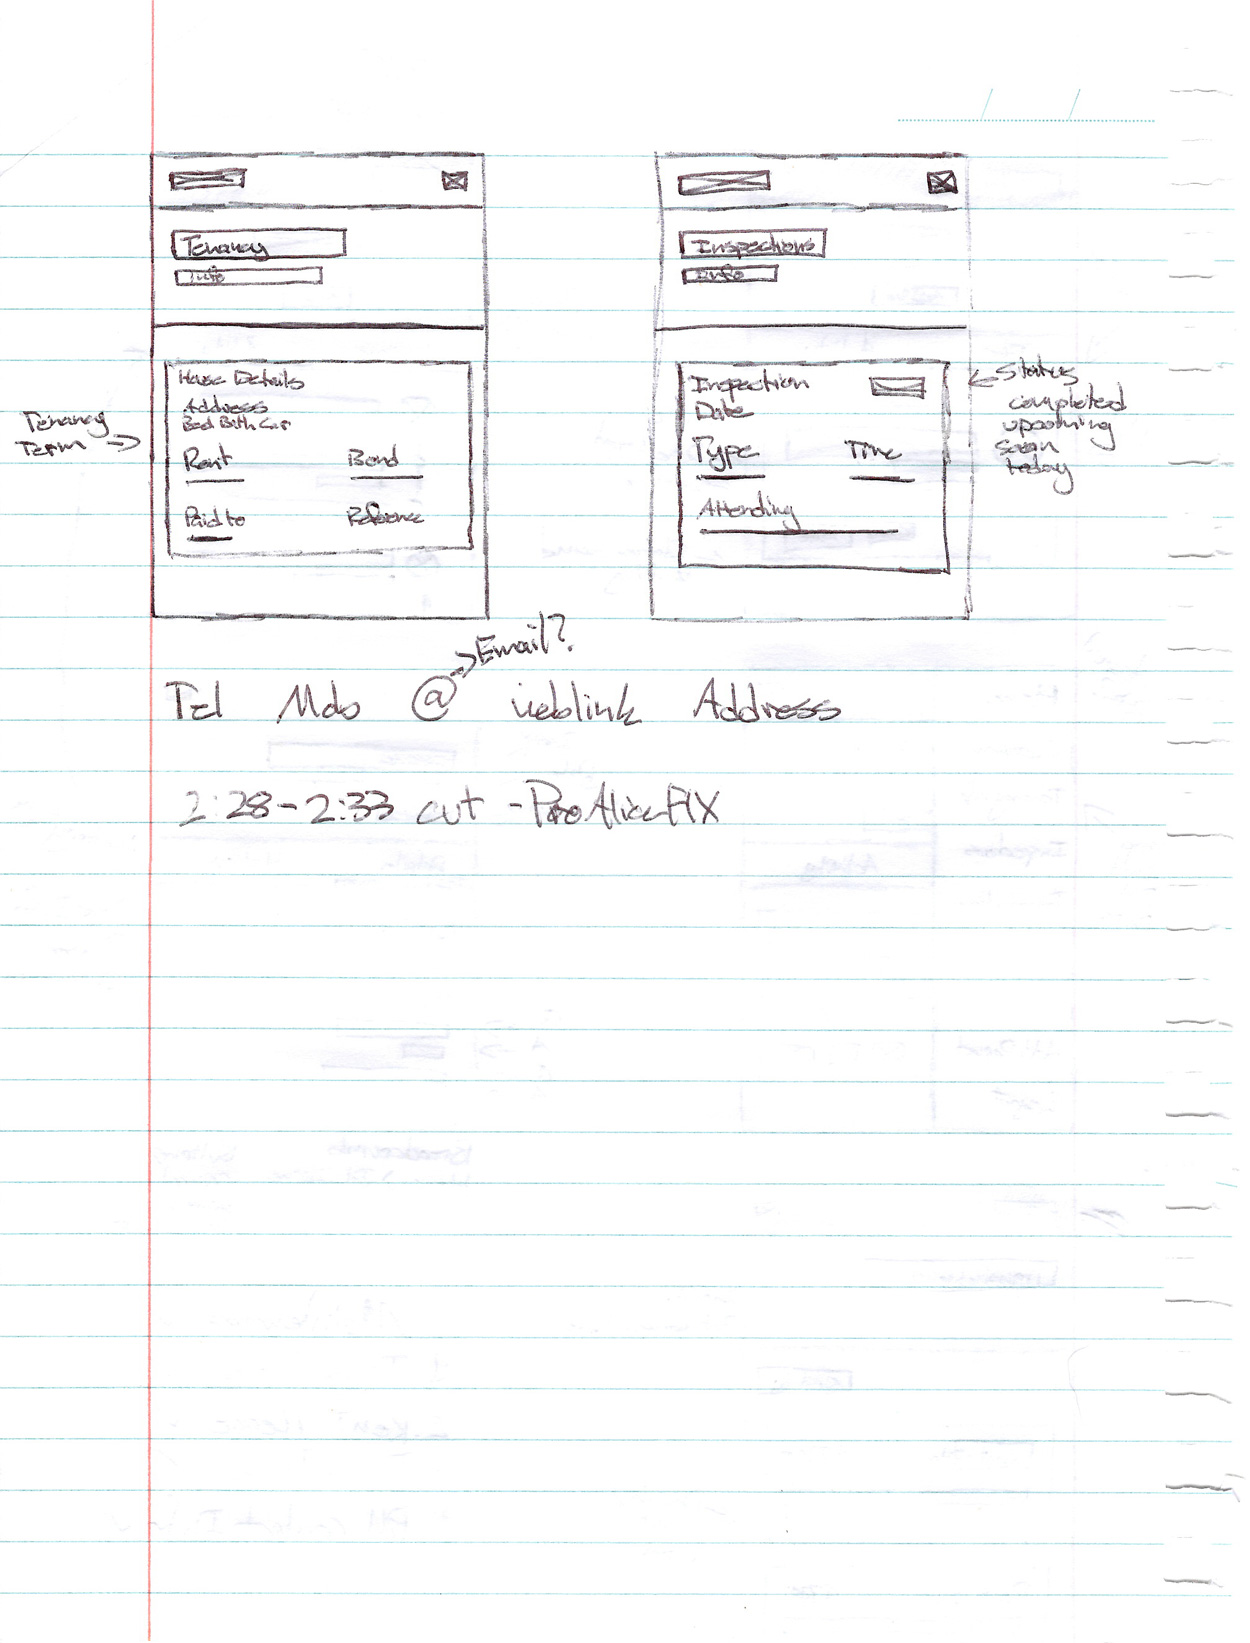 Tenancy
Info
House Details
Address
Bed Bath Car
Rent Bond
Paid to Reference
Tenancy
Term
Inspections
Info
Inspection
Date
Type Time
Attending
Status
completed
upcoming
soon
today
Email?
Tel Mob @ weblink Address
2:28-2:33 cut -